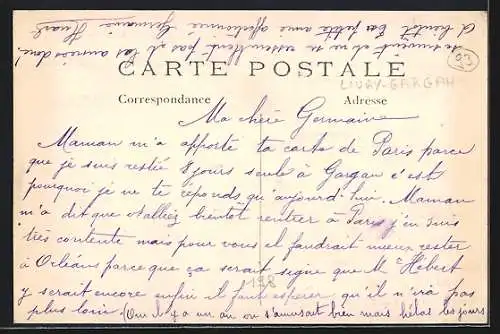 CARTE POSTALE
LIVRY-GARGAN
93
Correspondance
Adresse
Ma chère Germaine
Maman m'a apporté ta carte de Paris parce
que je suis restée 8 jours seule à Gargan c'est
pourquoi je ne te réponds qu'aujourd'hui. Maman
m'a dit que alliez bientôt rentrer à Paris j'en suis
très contente mais pour vous il faudrait mieux rester
à Orléans parce que ça serait signe que Mr Hébert
y serait encore enfin il faut espérer qu'il n'ira pas
138
plus loin (Oui il y a un an on s'amusait bien mais hélas les jours
se suivent et ne se ressemblent pas et les années donc
A bientôt Ta petite amie affectionnée Germaine